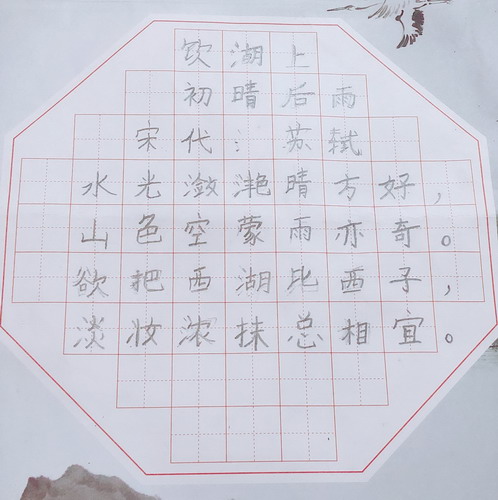 饮湖上
初晴后雨
宋代：苏轼
水光潋滟晴方好，
山色空蒙雨亦奇。
欲把西湖比西子，
淡妆浓抹总相宜。